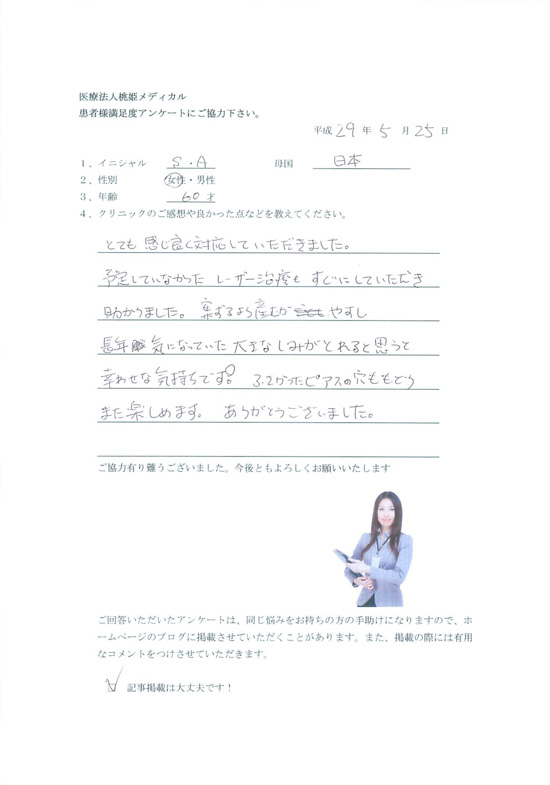 医療法人桃姫メディカル
患者様満足度アンケートにご協力下さい。
平成 29 年 5 月 25 日
1、イニシャル S・A 母国 日本
2、性別 女性・男性
3、年齢 60 才
4、クリニックのご感想や良かった点などを教えてください。
とても 感じ良く対応していただきました。
予定していなかった レーザー治療も すぐにしていただき
助かりました。案ずるより産むが やすし
長年 気になっていた 大きなしみがとれると思うと
幸わせな気持ちです。 ふさがったピアスの穴ももどり
また楽しめます。 ありがとうございました。
ご協力有り難うございました。今後ともよろしくお願いいたします
ご回答いただいたアンケートは、同じ悩みをお持ちの方の手助けになりますので、ホ
ームページのブログに掲載させていただくことがあります。また、掲載の際には有用
なコメントをつけさせていただきます。
記事掲載は大丈夫です！